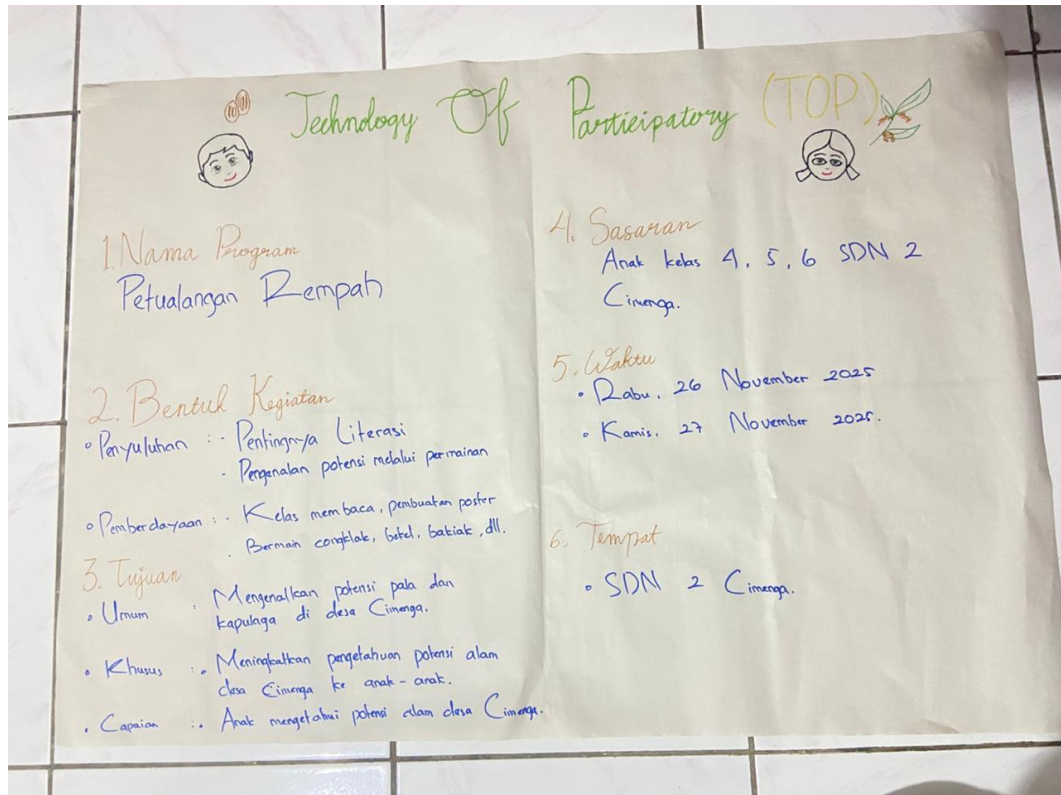 Technology Of Participatory (TOP)
1. Nama Program
Petualangan Rempah
2. Bentuk Kegiatan
• Penyuluhan : - Pentingnya Literasi
- Pengenalan potensi melalui permainan
• Pemberdayaan : - Kelas membaca, pembuatan poster
- Bermain congklak, bekel, bakiak, dll.
3. Tujuan
• Umum : Mengenalkan potensi pala dan
kapulaga di desa Cimenga.
• Khusus : • Meningkatkan pengetahuan potensi alam
desa Cimenga ke anak-anak.
• Capaian : • Anak mengetahui potensi alam desa Cimenga.
4. Sasaran
Anak kelas 4, 5, 6 SDN 2
Cimenga.
5. Waktu
• Rabu, 26 November 2025
• Kamis, 27 November 2025.
6. Tempat
• SDN 2 Cimenga.